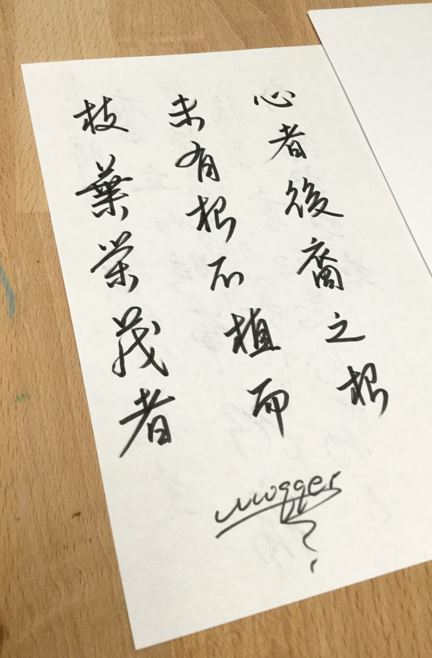 心者後裔之根
未有根不植而
枝葉榮茂者